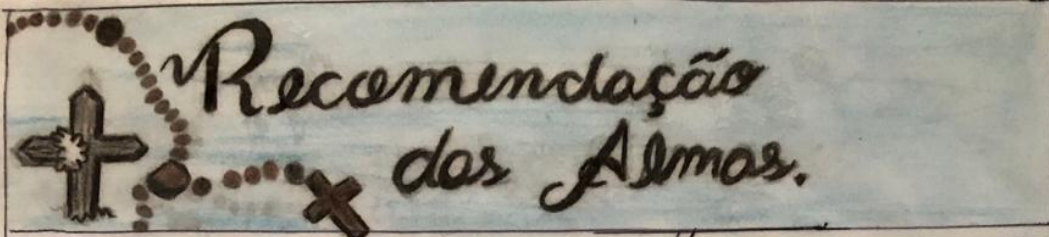 Recomendação
das Almas.